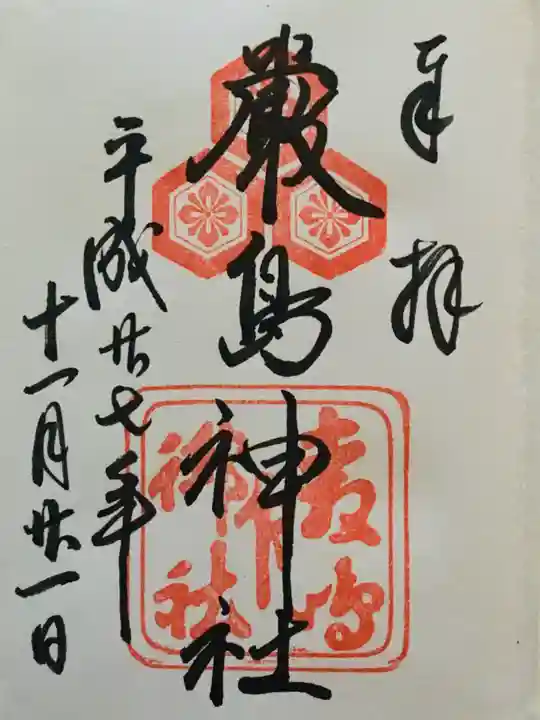 奉拝
厳島神社
平成廿七年
十一月廿一日
厳嶋
神社